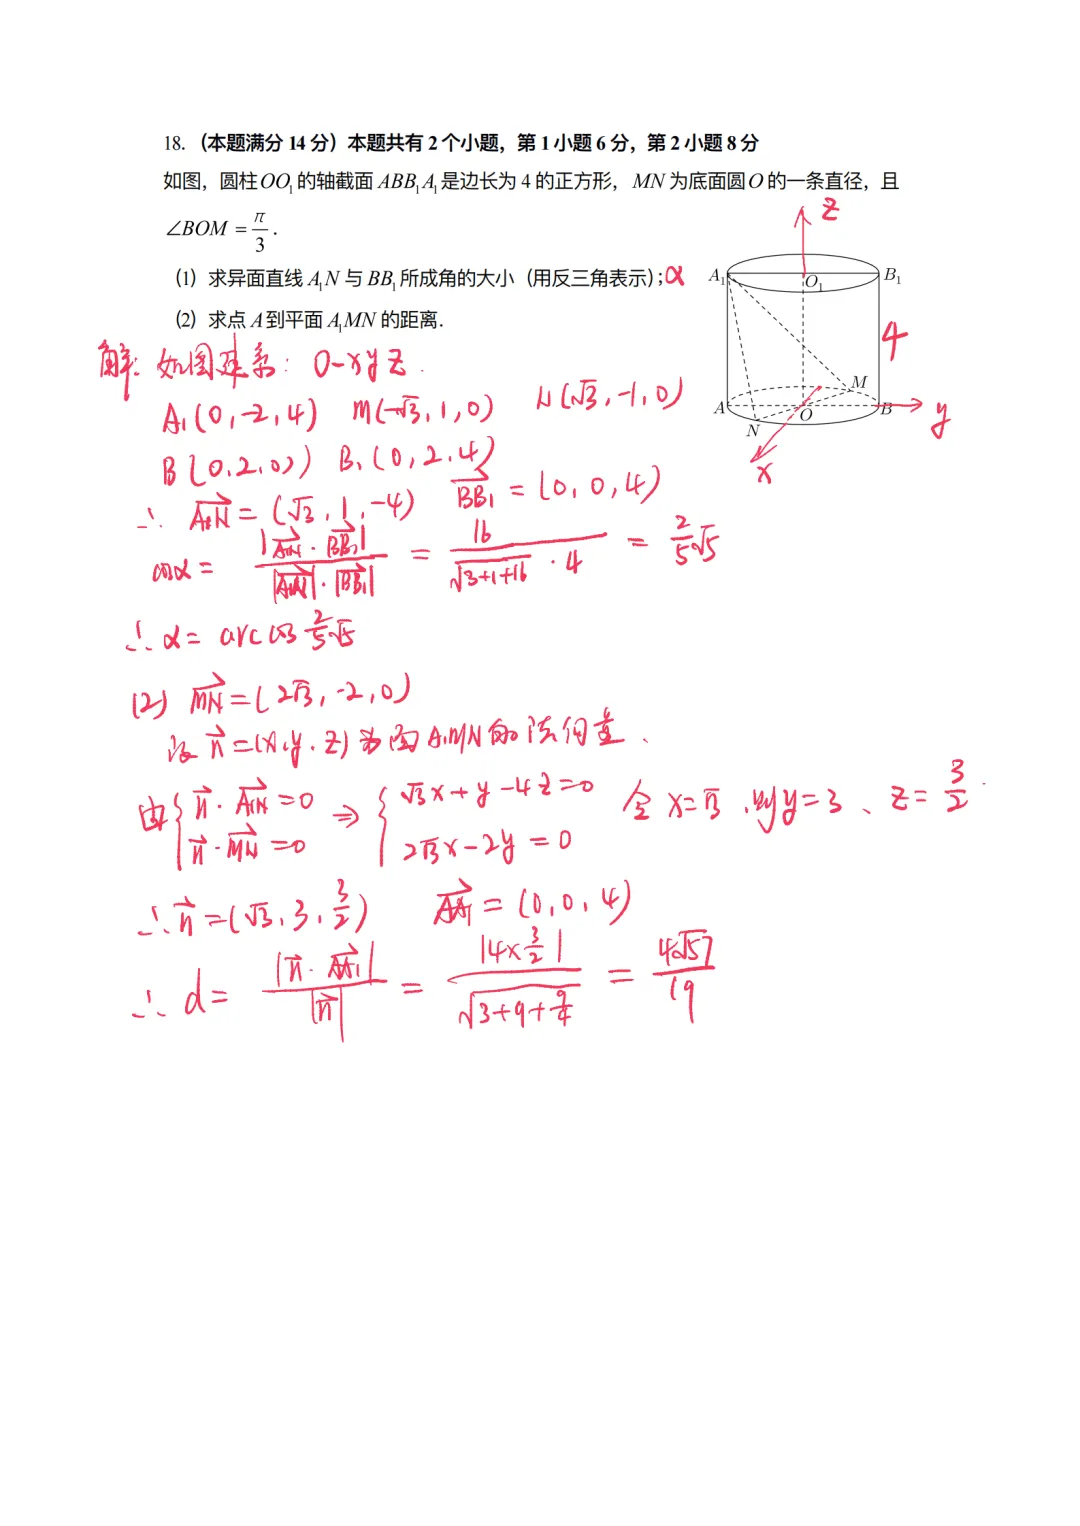 18.（本题满分 14 分）本题共有 2 个小题，第 1 小题 6 分，第 2 小题 8 分
如图，圆柱OO₁的轴截面 ABB₁A₁是边长为 4 的正方形，MN 为底面圆O 的一条直径，且
∠BOM = π/3 .
(1) 求异面直线 A₁N 与 BB₁所成角的大小（用反三角表示）; α
(2) 求点 A 到平面 A₁MN 的距离.
z
A₁ O₁ B₁
4
M
A O B y
N
x
解: 如图建系: O-xyz.
A₁(0,-2,4) M(-√3,1,0) N(√3,-1,0)
B(0,2,0) B₁(0,2,4)
∴ A₁N→ = (√3,1,-4) BB₁→ = (0,0,4)
cosα = |A₁N→·BB₁→| / |A₁N→|·|BB₁→| = 16 / √3+1+16 · 4 = 2/5 √5
∴ α = arccos 2/5 √5
(2) MN→ = (2√3,-2,0)
设 n→ = (x,y,z) 为面A₁MN的法向量、
由{ n→·A₁N→ = 0 ⇒ { √3x+y-4z=0 令 x=√3 , 则y=3、z=3/2
n→·MN→ = 0 2√3x-2y=0
∴ n→ = (√3,3,3/2) AA₁→ = (0,0,4)
∴ d = |n→·AA₁→| / |n→| = |4×3/2| / √3+9+9/4 = 4√57 / 19